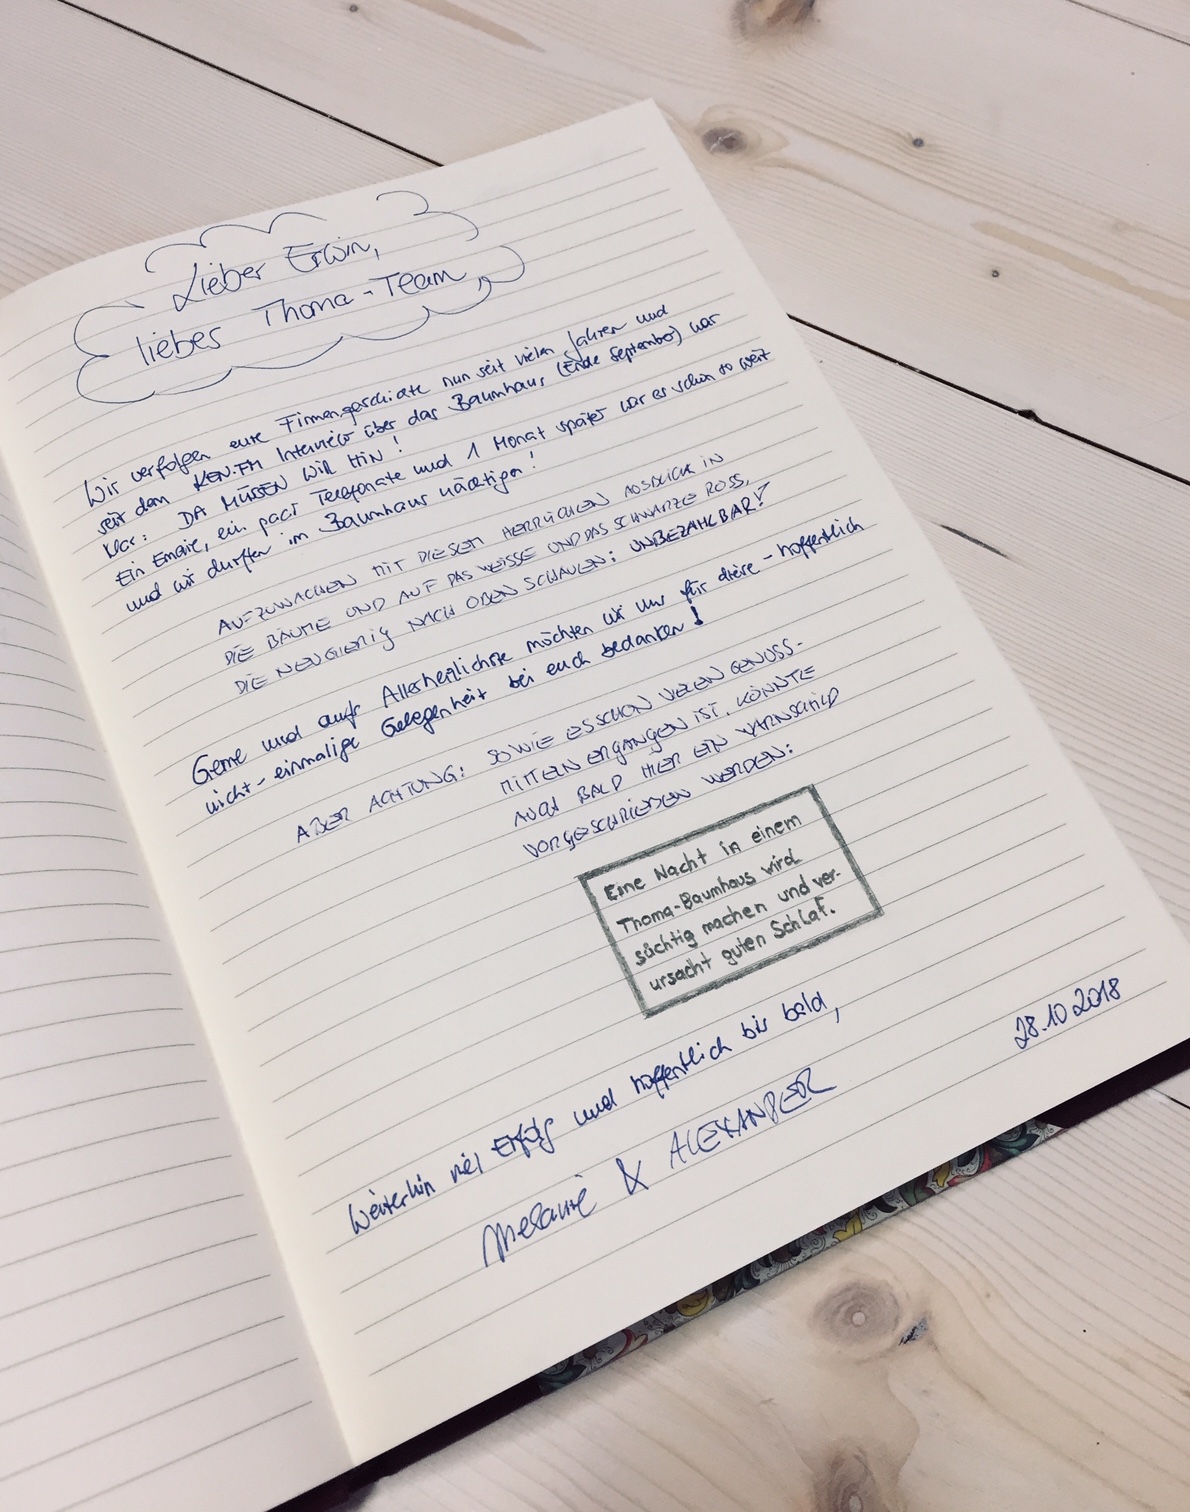 Lieber Erwin,
liebes Thoma-Team,
Wir verfolgen eure Firmengeschichte nun seit vielen Jahren und
seit dem KENFM Interview über das Baumhaus (Ende September) war
klar: DA MÜSSEN WIR HIN!
Ein Emaile, ein paar Telefonate und 1 Monat später war es schon so weit
und wir durften im Baumhaus nächtigen!
AUFZUWACHEN MIT DIESEM HERRLICHEN AUSBLICK IN
DIE BÄUME UND AUF DAS WEISSE UND DAS SCHWARZE ROSS,
DIE NEUGIERIG NACH OBEN SCHAUEN: UNBEZAHLBAR!
Gerne und aufs Allerherzlichste möchten wir uns für diese - hoffentlich
nicht - einmalige Gelegenheit bei euch bedanken!
ABER ACHTUNG: SO WIE ES SCHON VIELEN GENUSS-
MITTELN ERGANGEN IST, KÖNNTE
AUCH BALD HIER EIN WARNSCHILD
VORGESCHRIEBEN WERDEN:
Eine Nacht in einem
Thoma-Baumhaus wird
süchtig machen und ver-
ursacht guten Schlaf.
Weiterhin viel Erfolg und hoffentlich bis bald,
28.10.2018
Melanie & ALEXANDER